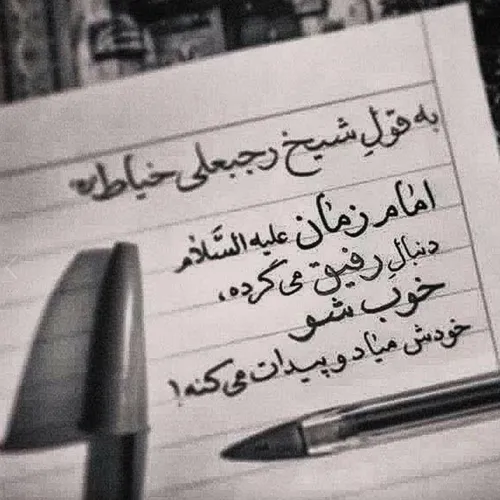 به قولِ شیخ رجبعلی خیاط ره
امام زمان علیه السَّلام
دنبالِ رفیق می گرده،
خوب شو
خودش میاد و پیدات می کنه!